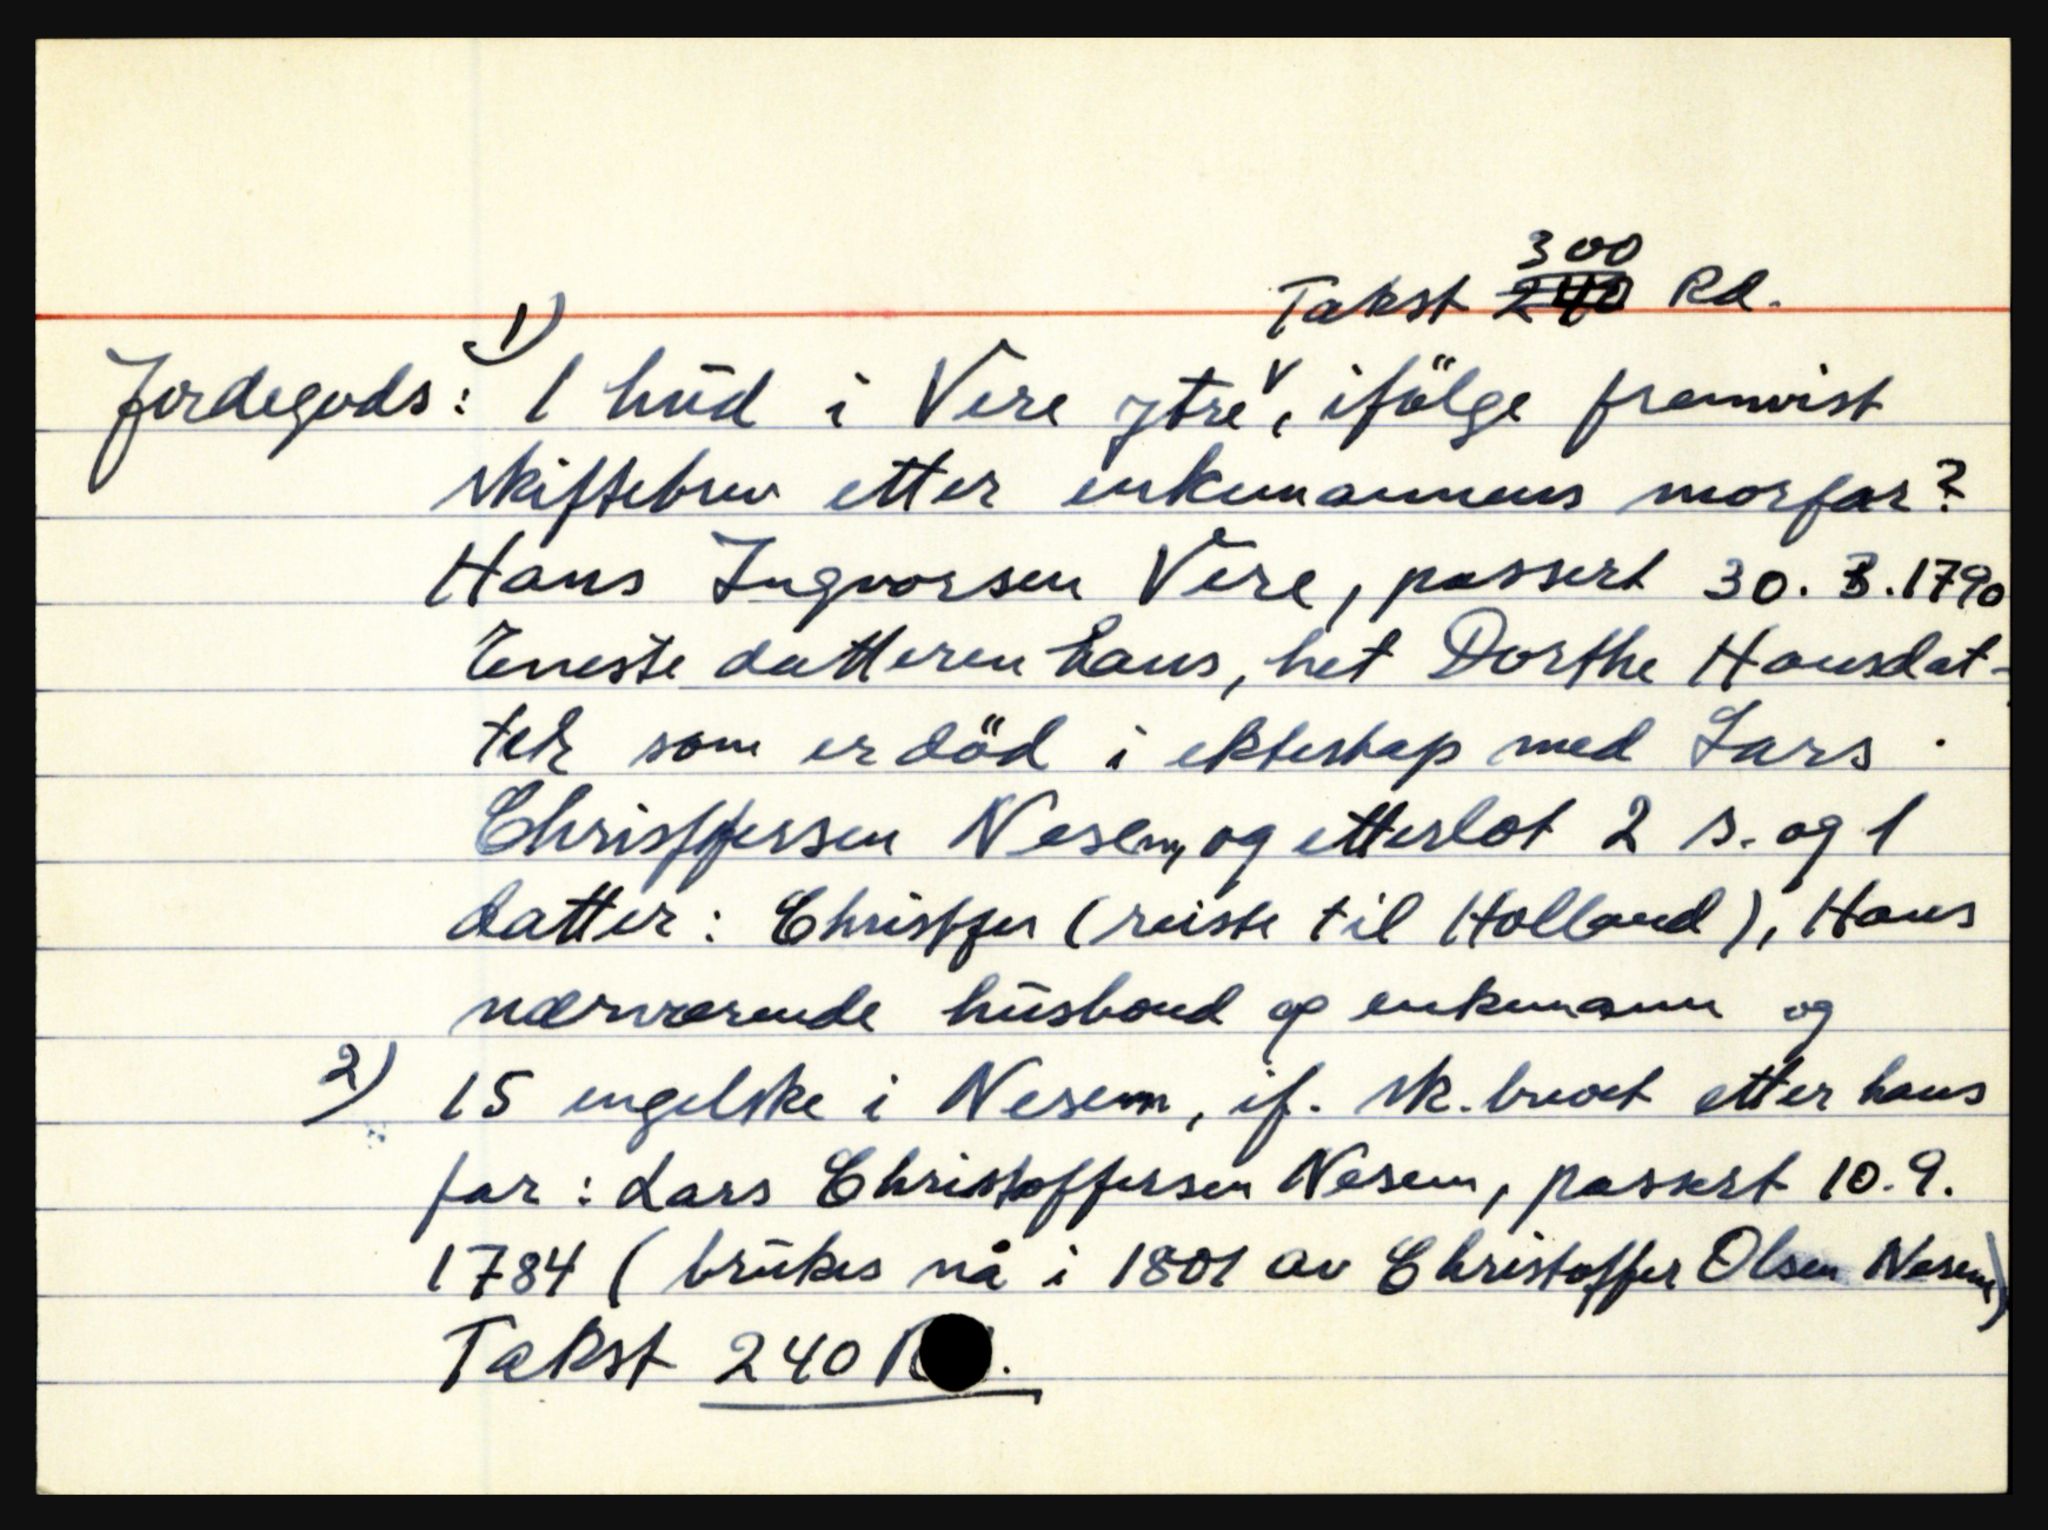 300
Takst 240 Rd.
1)
Jordegods: 1 hud i Vere ytre, ifölge fremvist
skiftebrev etter enkemannens morfar?
Hans Ingvorsen Vere, passert 30. 3. 1790
Eneste datteren hans, het Dorthe Hansdat-
ter som er död i ekteskap med Lars
Christffersen Nesem, og etterlot 2 s. og 1
datter: Christfer (reiste til Holland), Hans
nærværende husbond og enkemann og
2) 15 engelske i Nesem, if. sk.brevet etter hans
far: Lars Christoffersen Nesem, passert 10.9.
1784 (brukes nå i 1801 av Christoffer Olsen Nesem)
Takst 240 Rd.